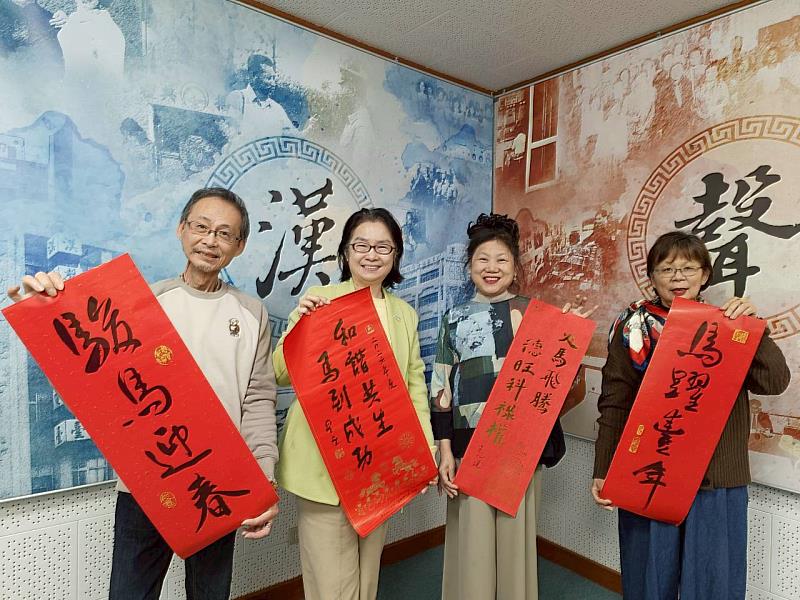 漢
聲
駿馬迎春
和諧共生
馬到成功
火馬飛騰
德旺科祺權
馬躍壹年